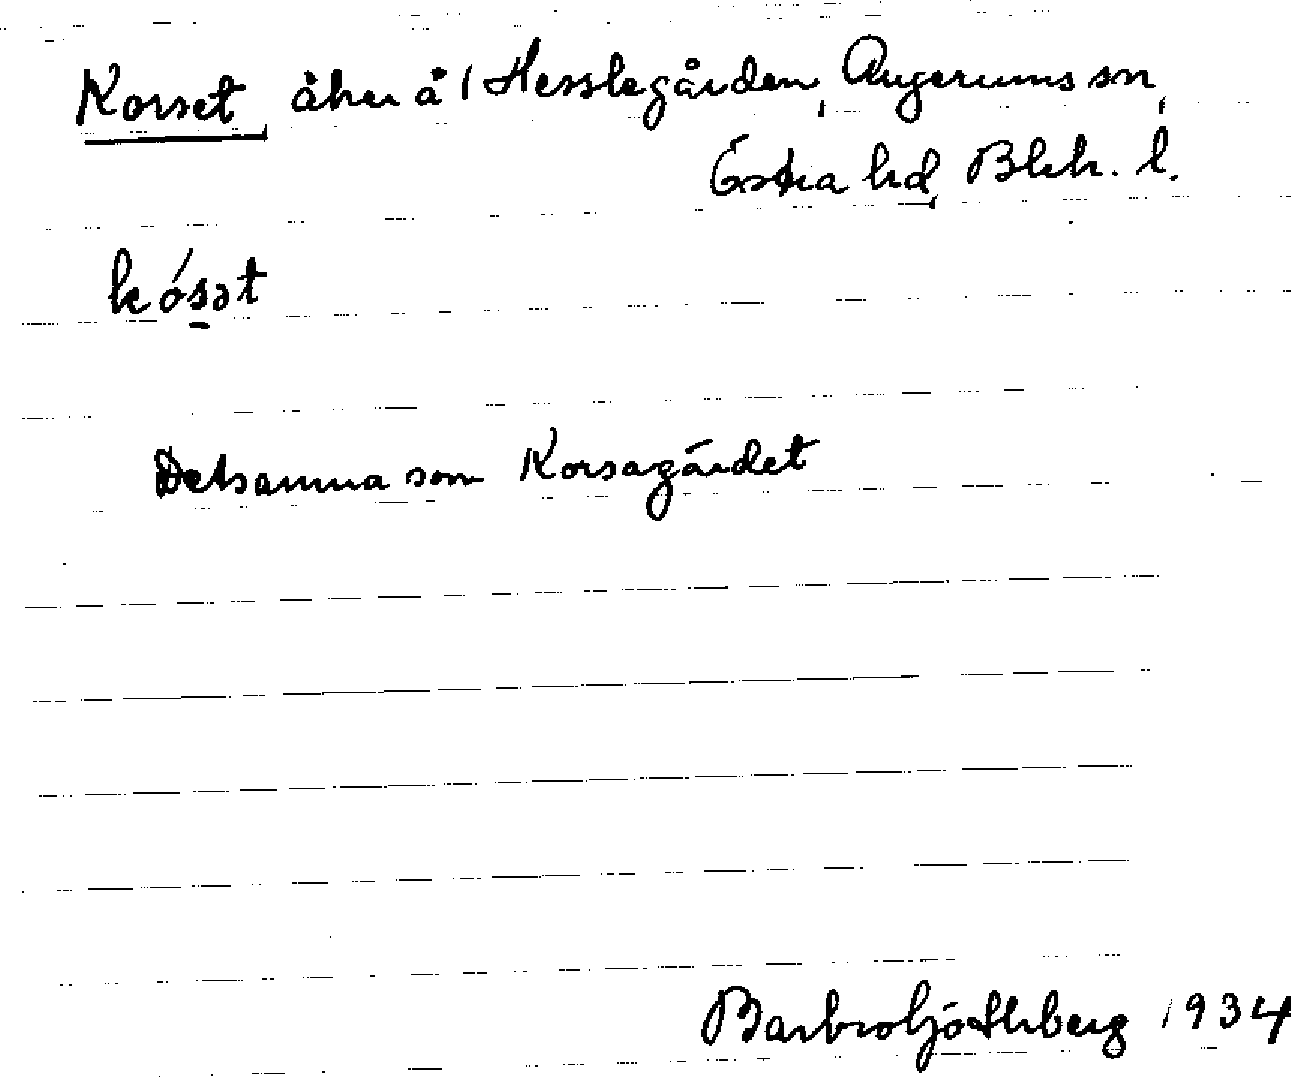 Korset, åker å 1 Hesslegården, Augerums sn,
Östra hd, Blek. l.
kósət
Detsamma som Korsagärdet
Barbro 1934